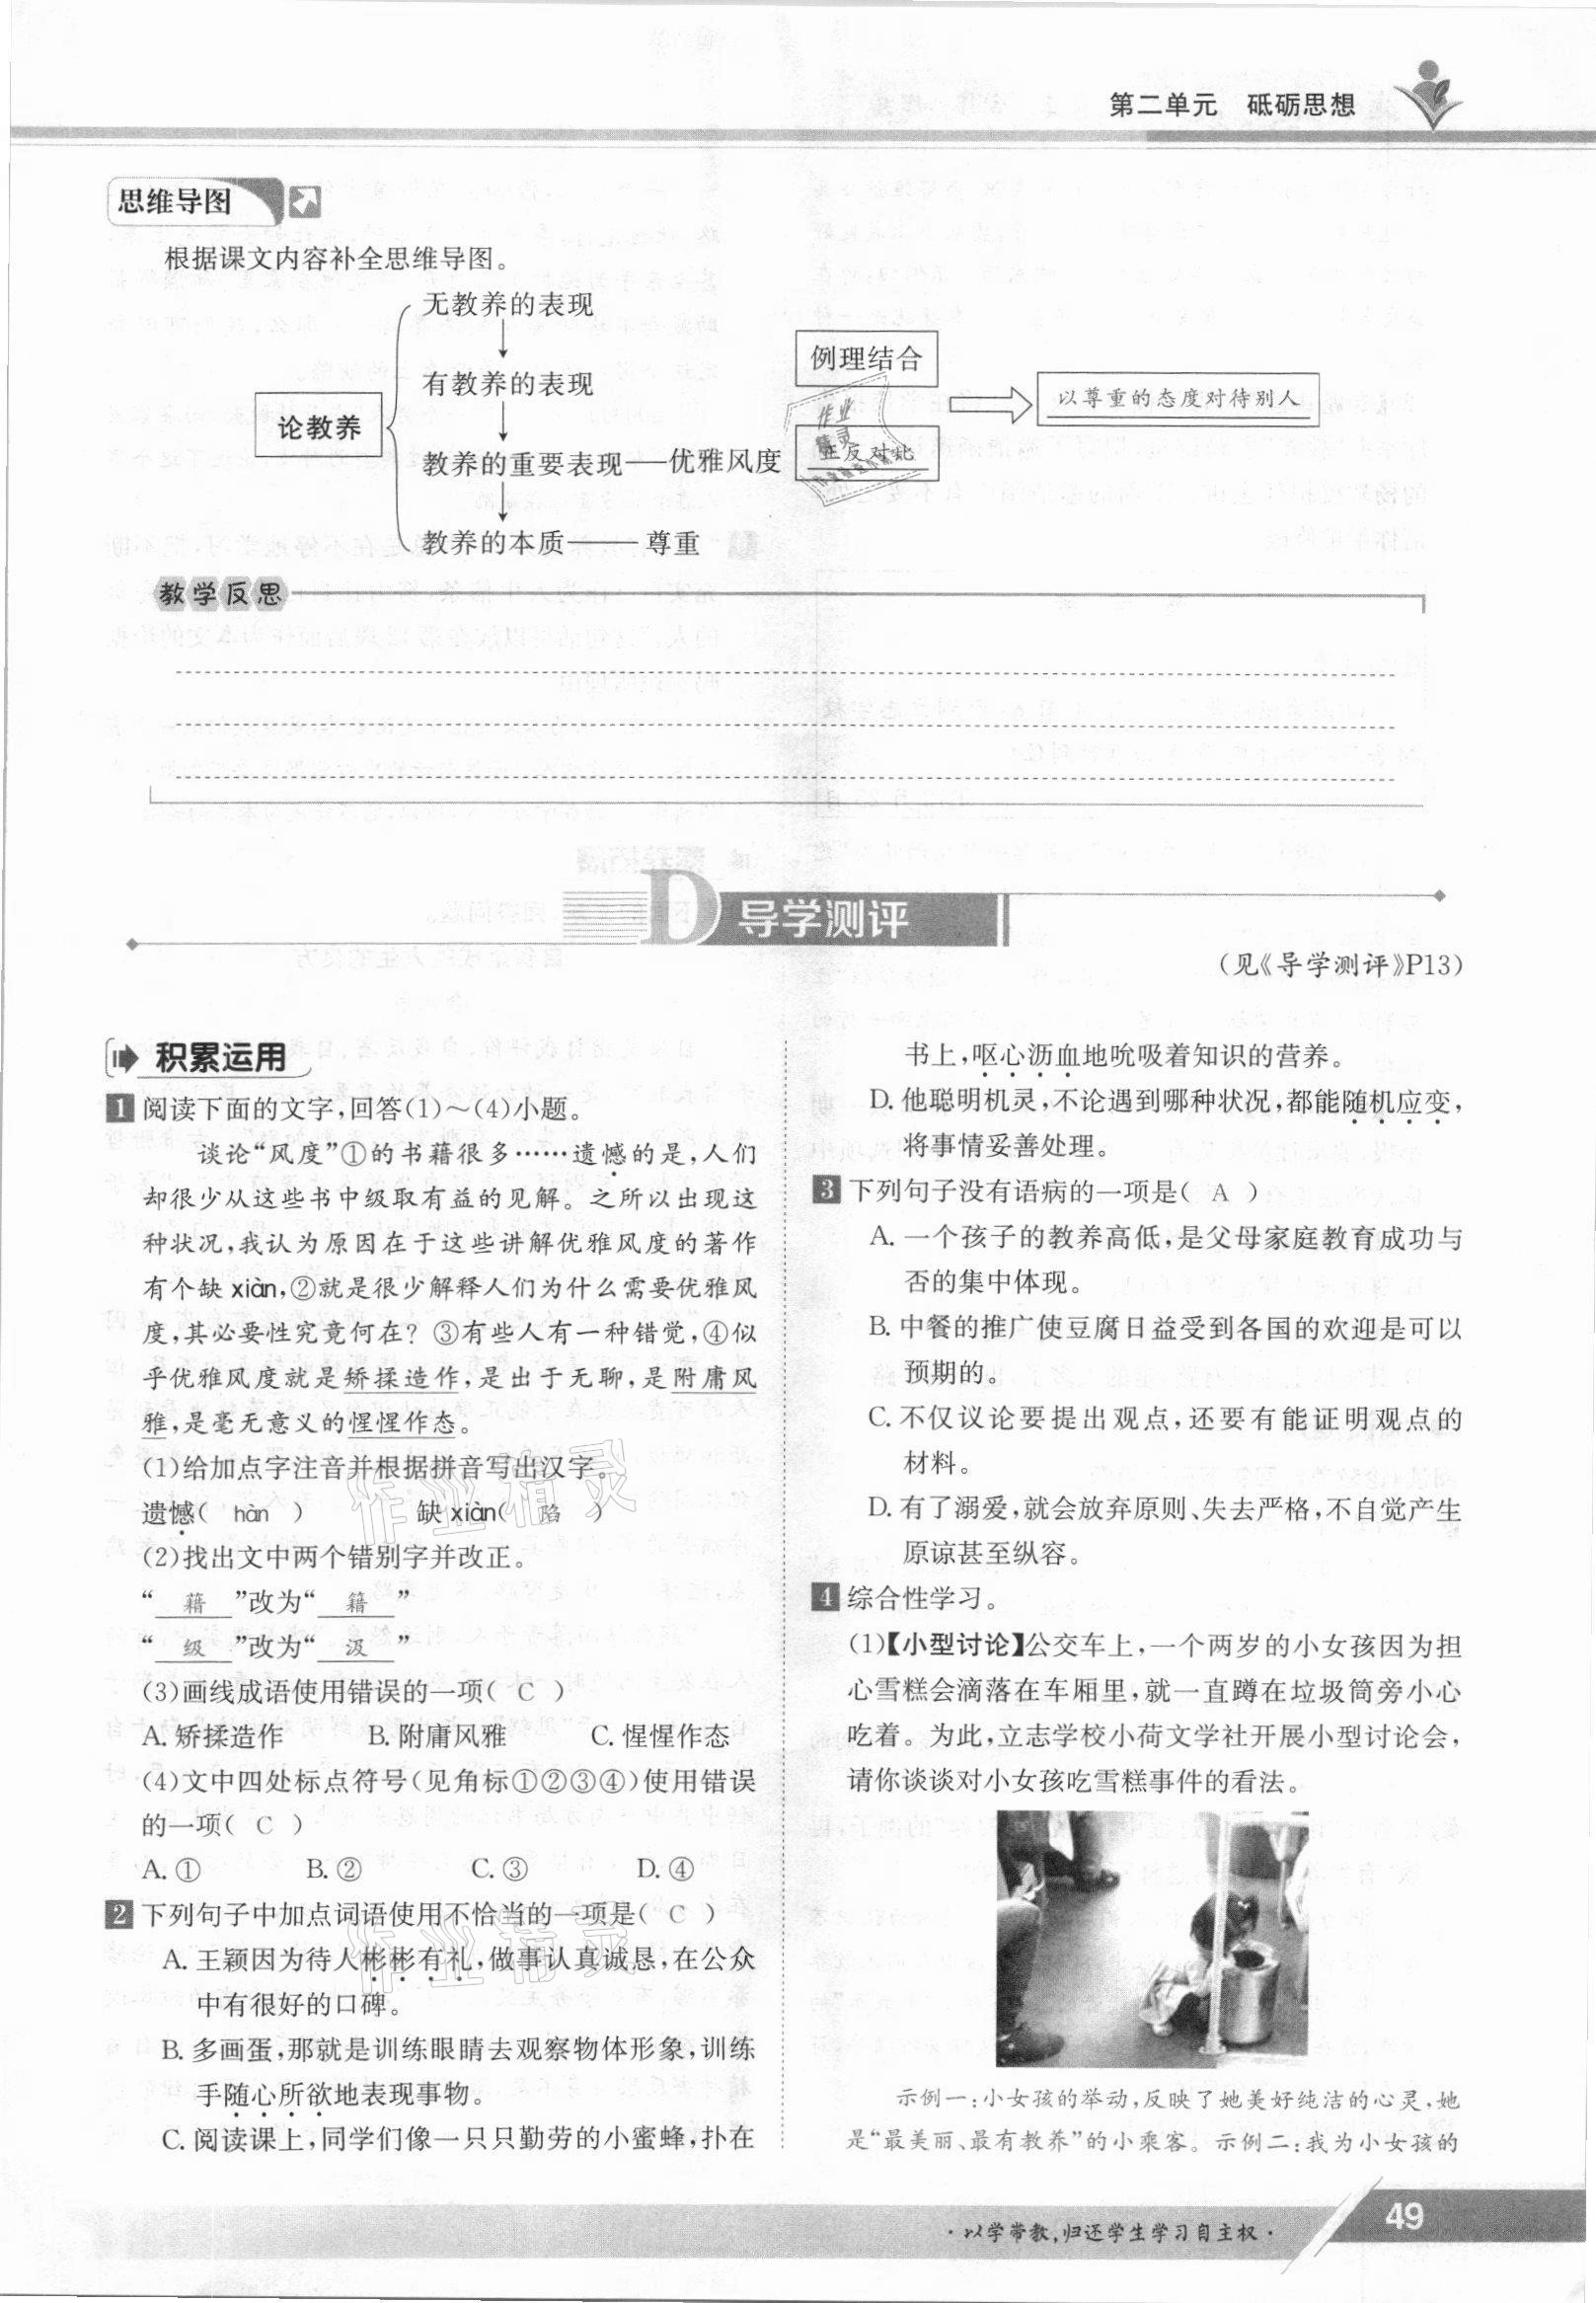 第二单元 砥砺思想
思维导图
根据课文内容补全思维导图。
论教养
无教养的表现
有教养的表现
教养的重要表现——优雅风度
教养的本质——尊重
例理结合
正反对比
以尊重的态度对待别人
教学反思
D 导学测评
(见《导学测评》P13)
积累运用
1 阅读下面的文字,回答(1)～(4)小题。
谈论“风度”①的书藉很多……遗憾的是,人们
却很少从这些书中级取有益的见解。之所以出现这
种状况,我认为原因在于这些讲解优雅风度的著作
有个缺 xiàn,②就是很少解释人们为什么需要优雅风
度,其必要性究竟何在? ③有些人有一种错觉,④似
乎优雅风度就是矫揉造作,是出于无聊,是附庸风
雅,是毫无意义的惺惺作态。
(1)给加点字注音并根据拼音写出汉字。
遗憾( hàn ) 缺 xiàn( 陷 )
(2)找出文中两个错别字并改正。
“ 藉 ”改为“ 籍 ”
“ 级 ”改为“ 汲 ”
(3)画线成语使用错误的一项( C )
A. 矫揉造作 B. 附庸风雅 C. 惺惺作态
(4)文中四处标点符号(见角标①②③④)使用错误
的一项( C )
A. ① B. ② C. ③ D. ④
2 下列句子中加点词语使用不恰当的一项是( C )
A. 王颖因为待人彬彬有礼,做事认真诚恳,在公众
中有很好的口碑。
B. 多画蛋,那就是训练眼睛去观察物体形象,训练
手随心所欲地表现事物。
C. 阅读课上,同学们像一只只勤劳的小蜜蜂,扑在
书上,呕心沥血地吮吸着知识的营养。
D. 他聪明机灵,不论遇到哪种状况,都能随机应变,
将事情妥善处理。
3 下列句子没有语病的一项是( A )
A. 一个孩子的教养高低,是父母家庭教育成功与
否的集中体现。
B. 中餐的推广使豆腐日益受到各国的欢迎是可以
预期的。
C. 不仅议论要提出观点,还要有能证明观点的
材料。
D. 有了溺爱,就会放弃原则、失去严格,不自觉产生
原谅甚至纵容。
4 综合性学习。
(1)【小型讨论】公交车上,一个两岁的小女孩因为担
心雪糕会滴落在车厢里,就一直蹲在垃圾筒旁小心
吃着。为此,立志学校小荷文学社开展小型讨论会,
请你谈谈对小女孩吃雪糕事件的看法。
示例一:小女孩的举动,反映了她美好纯洁的心灵,她
是“最美丽、最有教养”的小乘客。示例二:我为小女孩的
·以学带教,归还学生学习自主权·
49
作业精灵
作业精灵
作业精灵